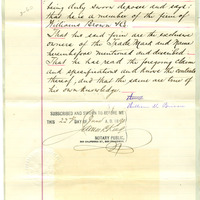 being duly sworn deposes and says:
that he is a member of the firm of
Williams Brown &Co
That his said firm are the exclusive
owners of the Trade Mark and Name
hereinbefore mentioned and described
That he has read the foregoing claim
and specifications and knows the contents
thereof, and that the same are true of
his own knowledge.
SUBSCRIBED AND SWORN TO BEFORE ME
THIS 22nd DAY OF
NOTARY PUBLIC,